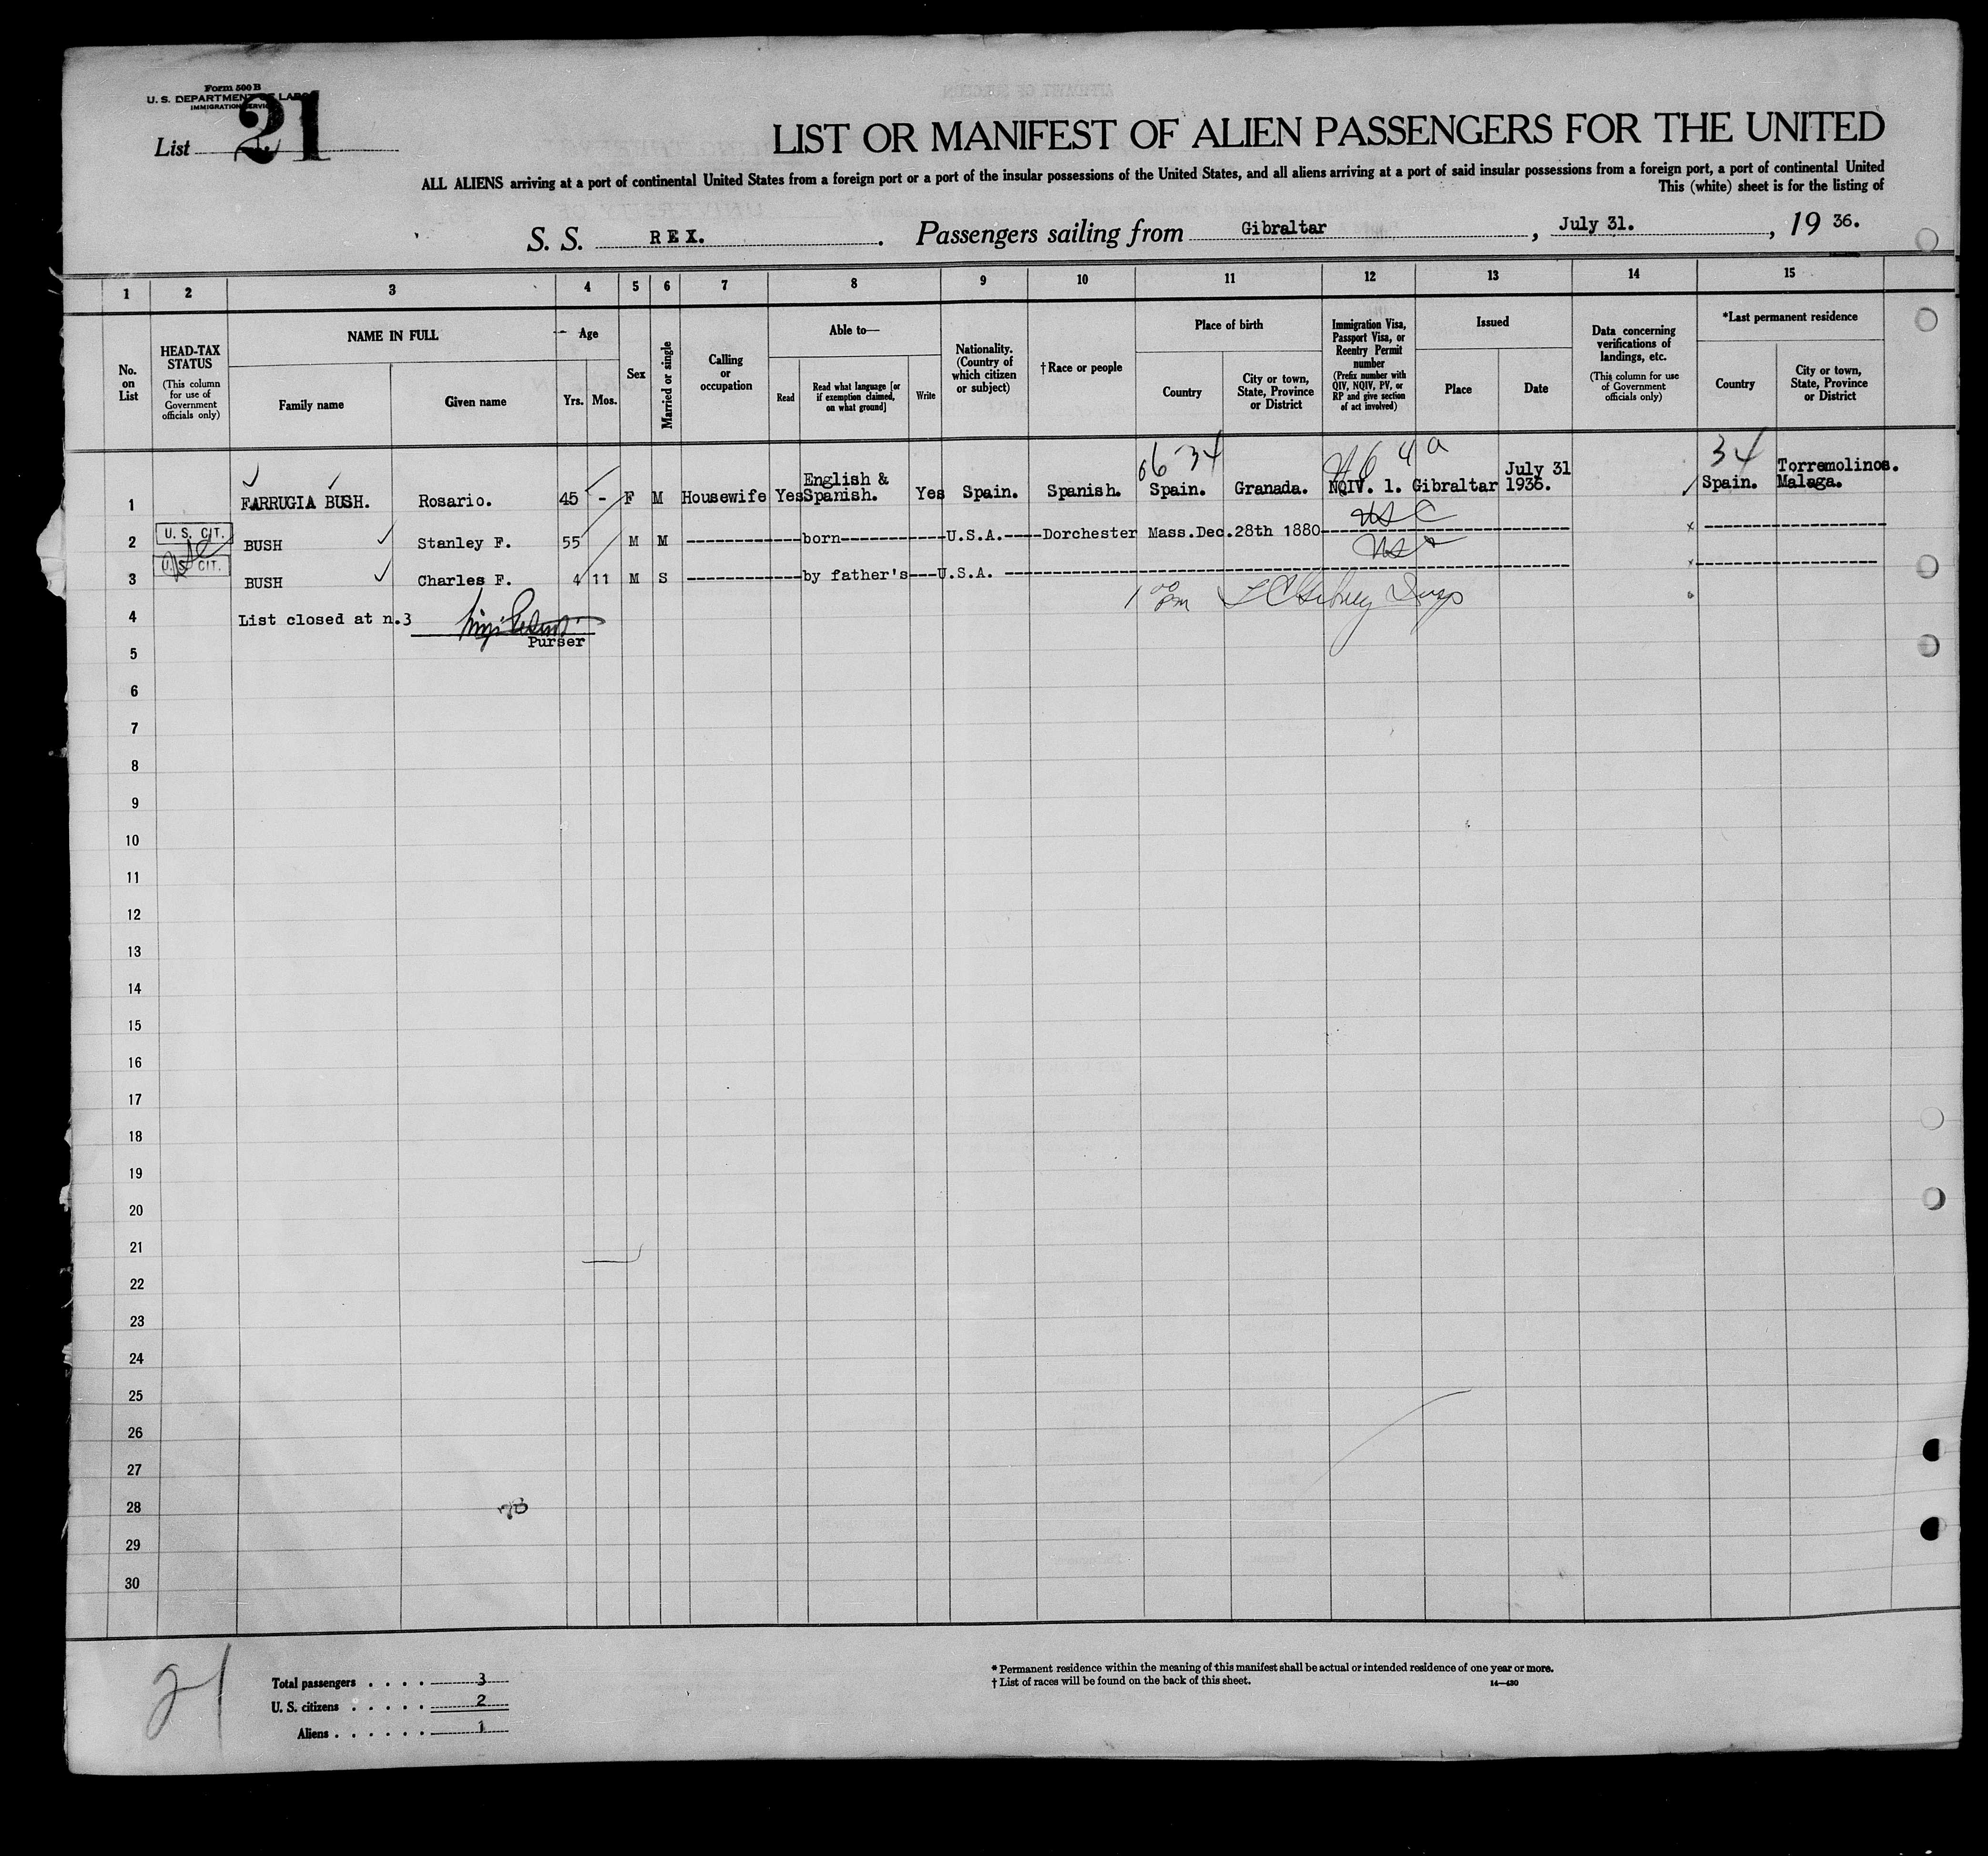 Form 500 B
U. S. DEPARTMENT OF LABOR
IMMIGRATION SERVICE
List 21
LIST OR MANIFEST OF ALIEN PASSENGERS FOR THE UNITED
ALL ALIENS arriving at a port of continental United States from a foreign port or a port of the insular possessions of the United States, and all aliens arriving at a port of said insular possessions from a foreign port, a port of continental United
This (white) sheet is for the listing of
S. S. REX. Passengers sailing from Gibraltar, July 31., 19 36.
1 2 3 4 5 6 7 8 9 10 11 12 13 14 15
No. on List
HEAD-TAX STATUS
(This column for use of Government officials only)
NAME IN FULL
Family name
Given name
Age
Yrs. Mos.
Sex
Married or single
Calling or occupation
Able to—
Read
Read what language [or if exemption claimed, on what ground]
Write
Nationality. (Country of which citizen or subject)
†Race or people
Place of birth
Country
City or town, State, Province or District
Immigration Visa, Passport Visa, or Reentry Permit number
(Prefix number with QIV, NQIV, PV, or RP and give section of act involved)
Issued
Place
Date
Data concerning verifications of landings, etc.
(This column for use of Government officials only)
*Last permanent residence
Country
City or town, State, Province or District
66 34 4 a 34
1 FARRUGIA BUSH. Rosario. 45 - F M Housewife Yes English & Spanish. Yes Spain. Spanish. Spain. Granada. NQIV. 1. Gibraltar July 31 1936. Spain. Torremolinos. Malaga.
U. S. CIT. USC
2 BUSH Stanley F. 55 M M ------------born-----------U.S.A.----Dorchester Mass.Dec.28th 1880
U. S. CIT.
3 BUSH Charles F. 4 11 M S ------------by father's---U.S.A.
4 List closed at n.3
Purser
5
6
7
8
9
10
11
12
13
14
15
16
17
18
19
20
21
22
23
24
25
26
27
28
29
30
21
Total passengers . . . . 3
U. S. citizens . . . . . 2
Aliens . . . . . . 1
* Permanent residence within the meaning of this manifest shall be actual or intended residence of one year or more.
† List of races will be found on the back of this sheet.
14—430